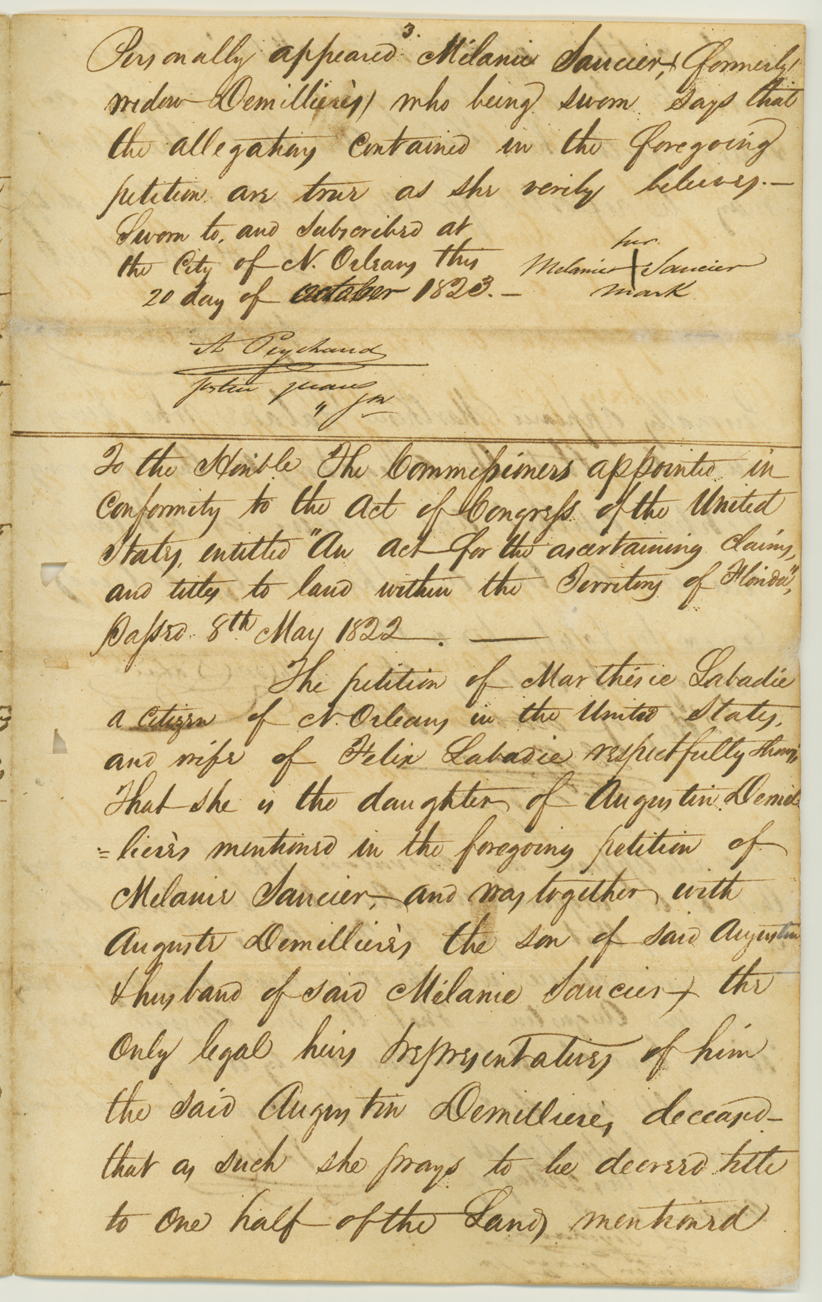 3
Personally appeared Mélanie Saucier, (formerly
widow Demillière's) who being sworn says that
the allegations contained in the foregoing
petition are true as she verily believes.—
Sworn to, and Subscribed at
the City of N. Orleans this
20 day of october 1823.—
her
Melanie + Saucier
mark
A Peychaud
To the Honble The Commissioners appointed in
Conformity to the Act of Congress of the United
States, entitled "An act for the ascertaining Claims,
and titles to land within the Territory of Florida",
Passed 8th May 1822. —
The petition of Marthésie Labadie
a citizen of N. Orleans in the United States,
and wife of Felix Labadie respectfully shews,
That she is the daughter of Augustin Demil
=lière's mentioned in the foregoing petition of
Melanie Saucier, and was together with
Auguste Demillière's the son of said Augustin
& husband of said Mélanie Saucier, the
only legal heirs & representatives of him
the said Augustin Demillière's, deceased—
that as such she prays to be decreed title
to one half of the Land, mentioned